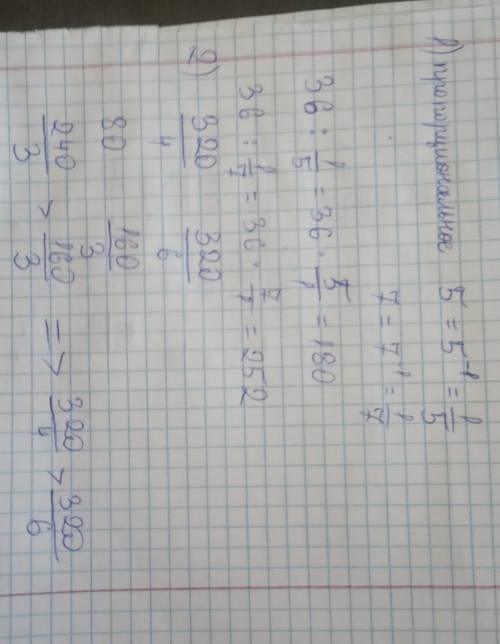 1) пропорциональное 5 = 5⁻¹ = 1/5
7 = 7⁻¹ = 1/7
36 : 1/5 = 36 · 5/1 = 180
36 : 1/7 = 36 · 7/1 = 252
2) 320/4 320/6
80 160/3
240/3 > 160/3 => 320/4 > 320/6